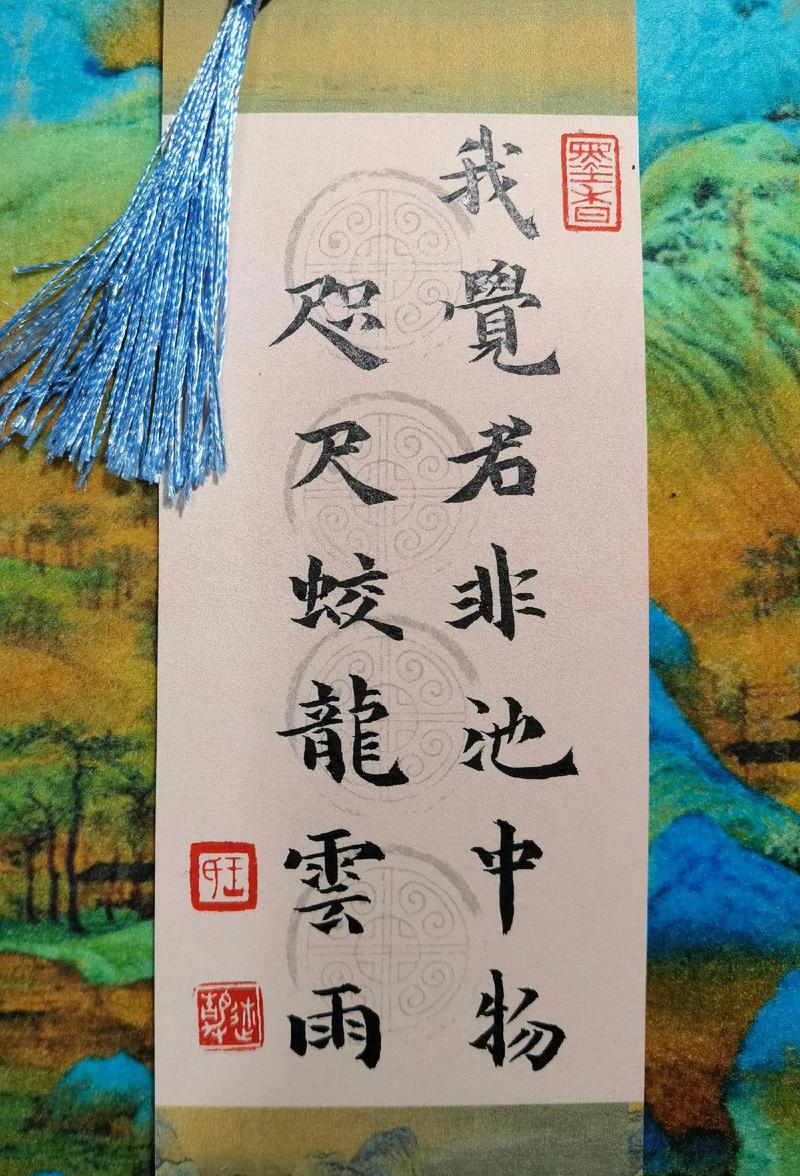 墨香
我覺君非池中物
咫尺蛟龍雲雨
旺